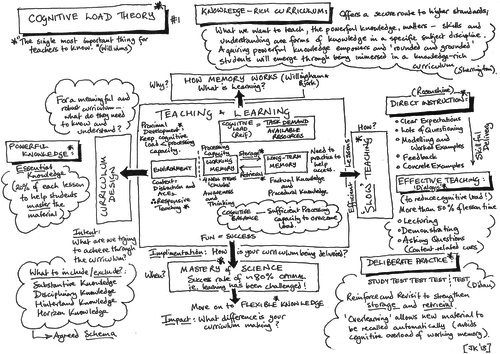 COGNITIVE LOAD THEORY * #1
* "The single most important thing for
teachers to know." (Wiliam)
KNOWLEDGE-RICH CURRICULUM:
Offers a secure route to higher standards;
What we want to teach, the powerful knowledge, matters - skills and
understanding are forms of knowledge in a specific subject discipline.
Acquiring powerful knowledge empowers and 'rounded and grounded'
students will emerge through being immersed in a knowledge-rich
curriculum (Sherrington)
Why?
HOW MEMORY WORKS (Willingham &
What is learning? Bjork)
For a meaningful and
robust curriculum -
what do they
need to know and
understand?
POWERFUL
KNOWLEDGE: *
Essential
Knowledge
(20% of each lesson
to help students
master the
material)
CURRICULUM
DESIGN
TEACHING & LEARNING
Proximal
Development:
Keep cognitive
load < processing
capacity.
COGNITIVE
LOAD
(Reif)
= TASK DEMAND
AVAILABLE
RESOURCES
ENVIRONMENT
Context:
Distraction and
ACEs.
* Responsive
Teaching *
Processing
Capacity
WORKING
MEMORY
4 NEW ITEMS
Awareness
and
Thinking
Storage
Retrieval
LONG-TERM
MEMORY
Factual Knowledge
and
Procedural Knowledge
Need to
practice to
help access.
COGNITIVE
BALANCE
Sufficient Processing
capacity to overcome
load.
FUN = SUCCESS
Efficient Lessons
How?
'SLOW' TEACHING *
(Rosenshine)
DIRECT INSTRUCTION:
Clear Expectations
Lots of Questioning
Modelling and
Worked
Examples
Feedback
Concrete Examples
Skilful Delivery
EFFECTIVE TEACHING: *
(Didau)
(to reduce cognitive load!)
More than 50% of lesson time
Lecturing
Demonstrating
Asking Questions
(Content-related cues)
DELIBERATE PRACTICE *
STUDY TEST TEST TEST TEST
(Didau)
Reinforce and Revisit to strengthen
storage and retrieval
'Overlearning' allows new material to
be recalled automatically (avoids
cognitive overload of working memory).
[JK'18]
Intent:
What are we trying
to achieve through
the curriculum?
What to include/exclude:
Substantive Knowledge
Disciplinary Knowledge
Hinterland Knowledge
Horizon Knowledge
Agreed Schema
Implementation: How is your curriculum being delivered?
When?
MASTERY of SCIENCE
Success rate of ~80% optimal
i.e. learning has been challenged!
More on to FLEXIBLE KNOWLEDGE
Impact: What difference is your
curriculum making?